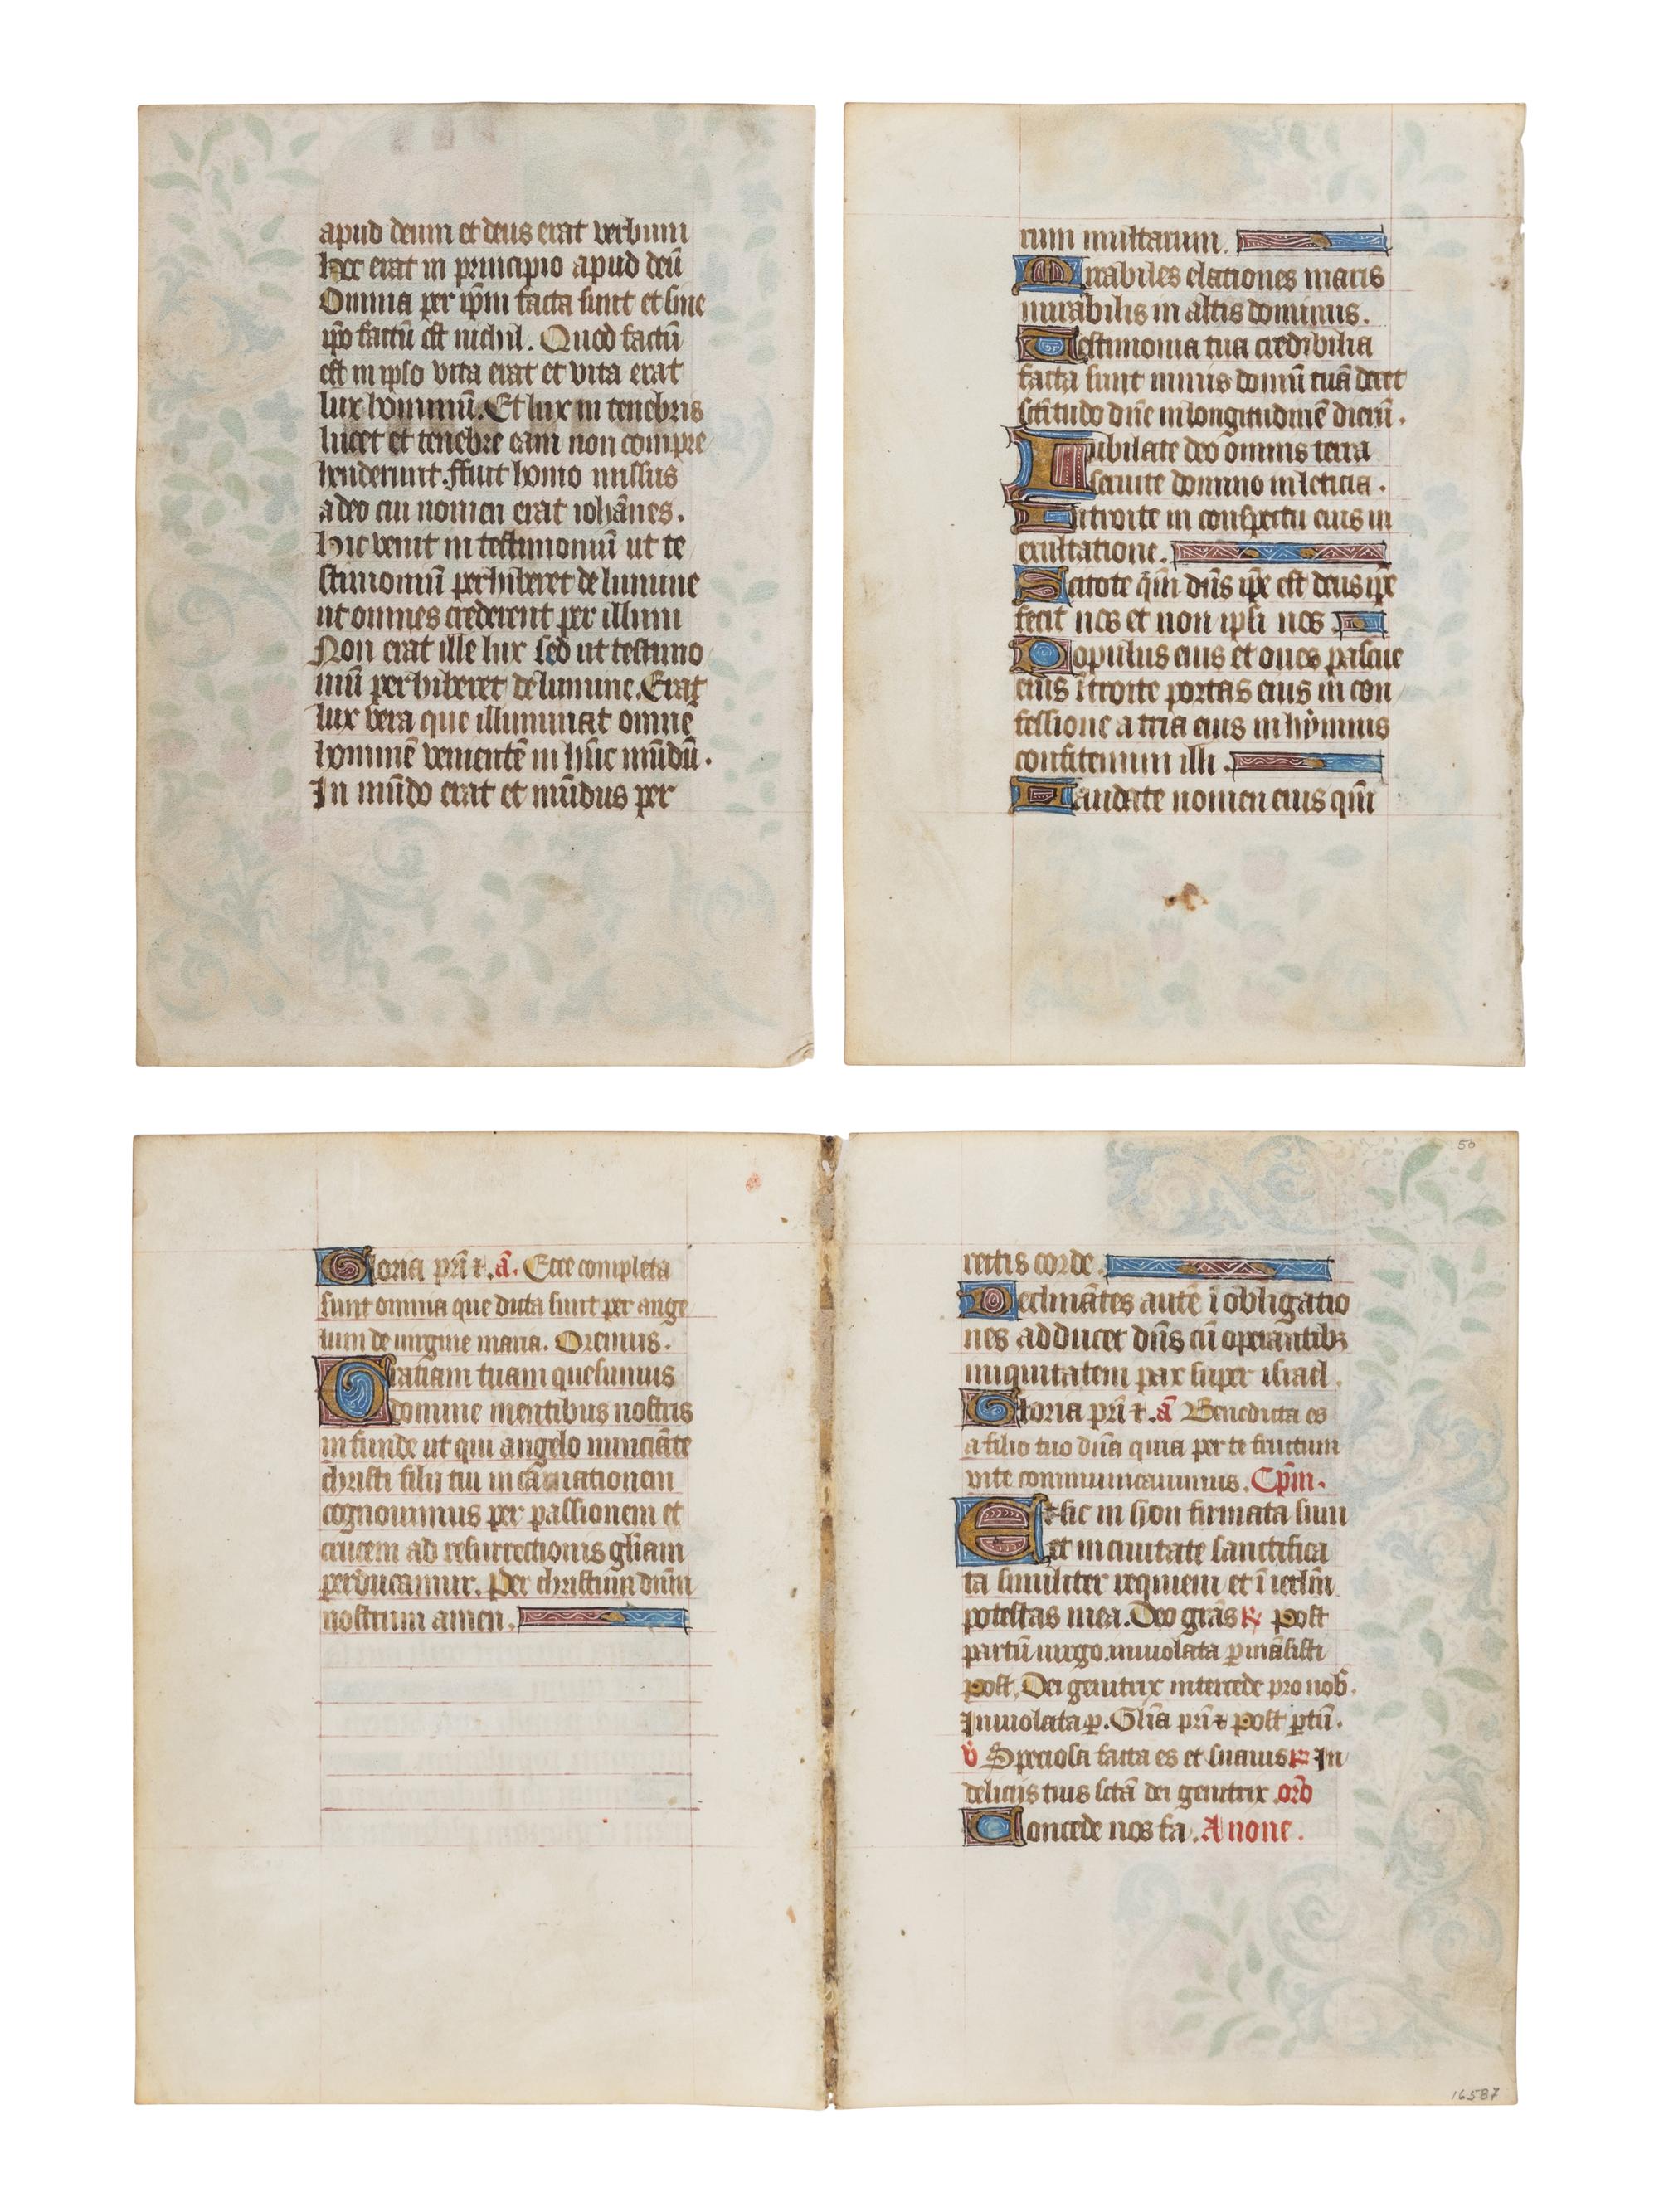 apud deum et deus erat verbum
hoc erat in principio apud deū
Omnia per ip̄m facta sunt et sine
ip̄o factū est nichil. Quod factū
est in ipso vita erat et vita erat
lux hominū. Et lux in tenebris
lucet et tenebre eam non compre
henderunt. ffuit homo missus
a deo cui nomen erat iohānes.
Hic venit in testimoniū ut te
stimoniū perhiberet de lumine
ut omnes crederent per illum
Non erat ille lux sed ut testimo
niū perhiberet de lumine. Erat
lux vera que illuminat omnē
hominē venientē in hūc mūdū.
In mūdo erat et mūdus per
rum multarum.
Mirabiles elationes maris
mirabilis in altis dominus.
Testimonia tua credibilia
facta sunt nimis domū tuā decet
sc̄titudo dn̄e in longitudinē dierū.
Iubilate deo omnis terra
seruite domino in leticia.
Introite in conspectu eius in
exultatione.
Scitote qm̄ dn̄s ip̄e est deus ip̄e
fecit nos et non ipsi nos
Populus eius et oues pascue
eius ītroite portas eius in con
fessione atria eius in hẏmnis
confitemini illi.
Laudate nomen eius qm̄
Gloria pr̄i ⁊. ā. Ecce completa
sunt omnia que dicta sunt per ange
lum de uirgine maria. Oremus.
Gratiam tuam quesumus
domine mentibus nostris
infunde ut qui angelo nunciāte
christi filij tui incarnationem
cognouimus per passionem et
crucem ad resurrectionis gl̄iam
perducamur. Per christum dn̄m
nostrum amen.
50
rectis corde.
Declinātes autē ī obligatio
nes adducet dn̄s cū operantibꝫ
iniquitatem pax super israel.
Gloria pr̄i ⁊. ā Benedicta es
a filio tuo dn̄a quia per te fructum
vite communicauimus. Cp̄m.
Et sic in syon firmata sum
et in ciuitate sanctifica
ta similiter requieui et ī ierl̄m
potestas mea. Deo grās ꝶ Post
partū uirgo. inuiolata ꝑmāsisti
Post. Dei genitrix intercede pro nob̄.
Inuiolata ꝑ. Gl̄ia pr̄i ⁊ post ꝑtū.
v̄ Speciosa facta es et suauis ꝶ In
delicijs tuis sc̄tā dei genitrix. or̄o
Concede nos fa. A none.
16587